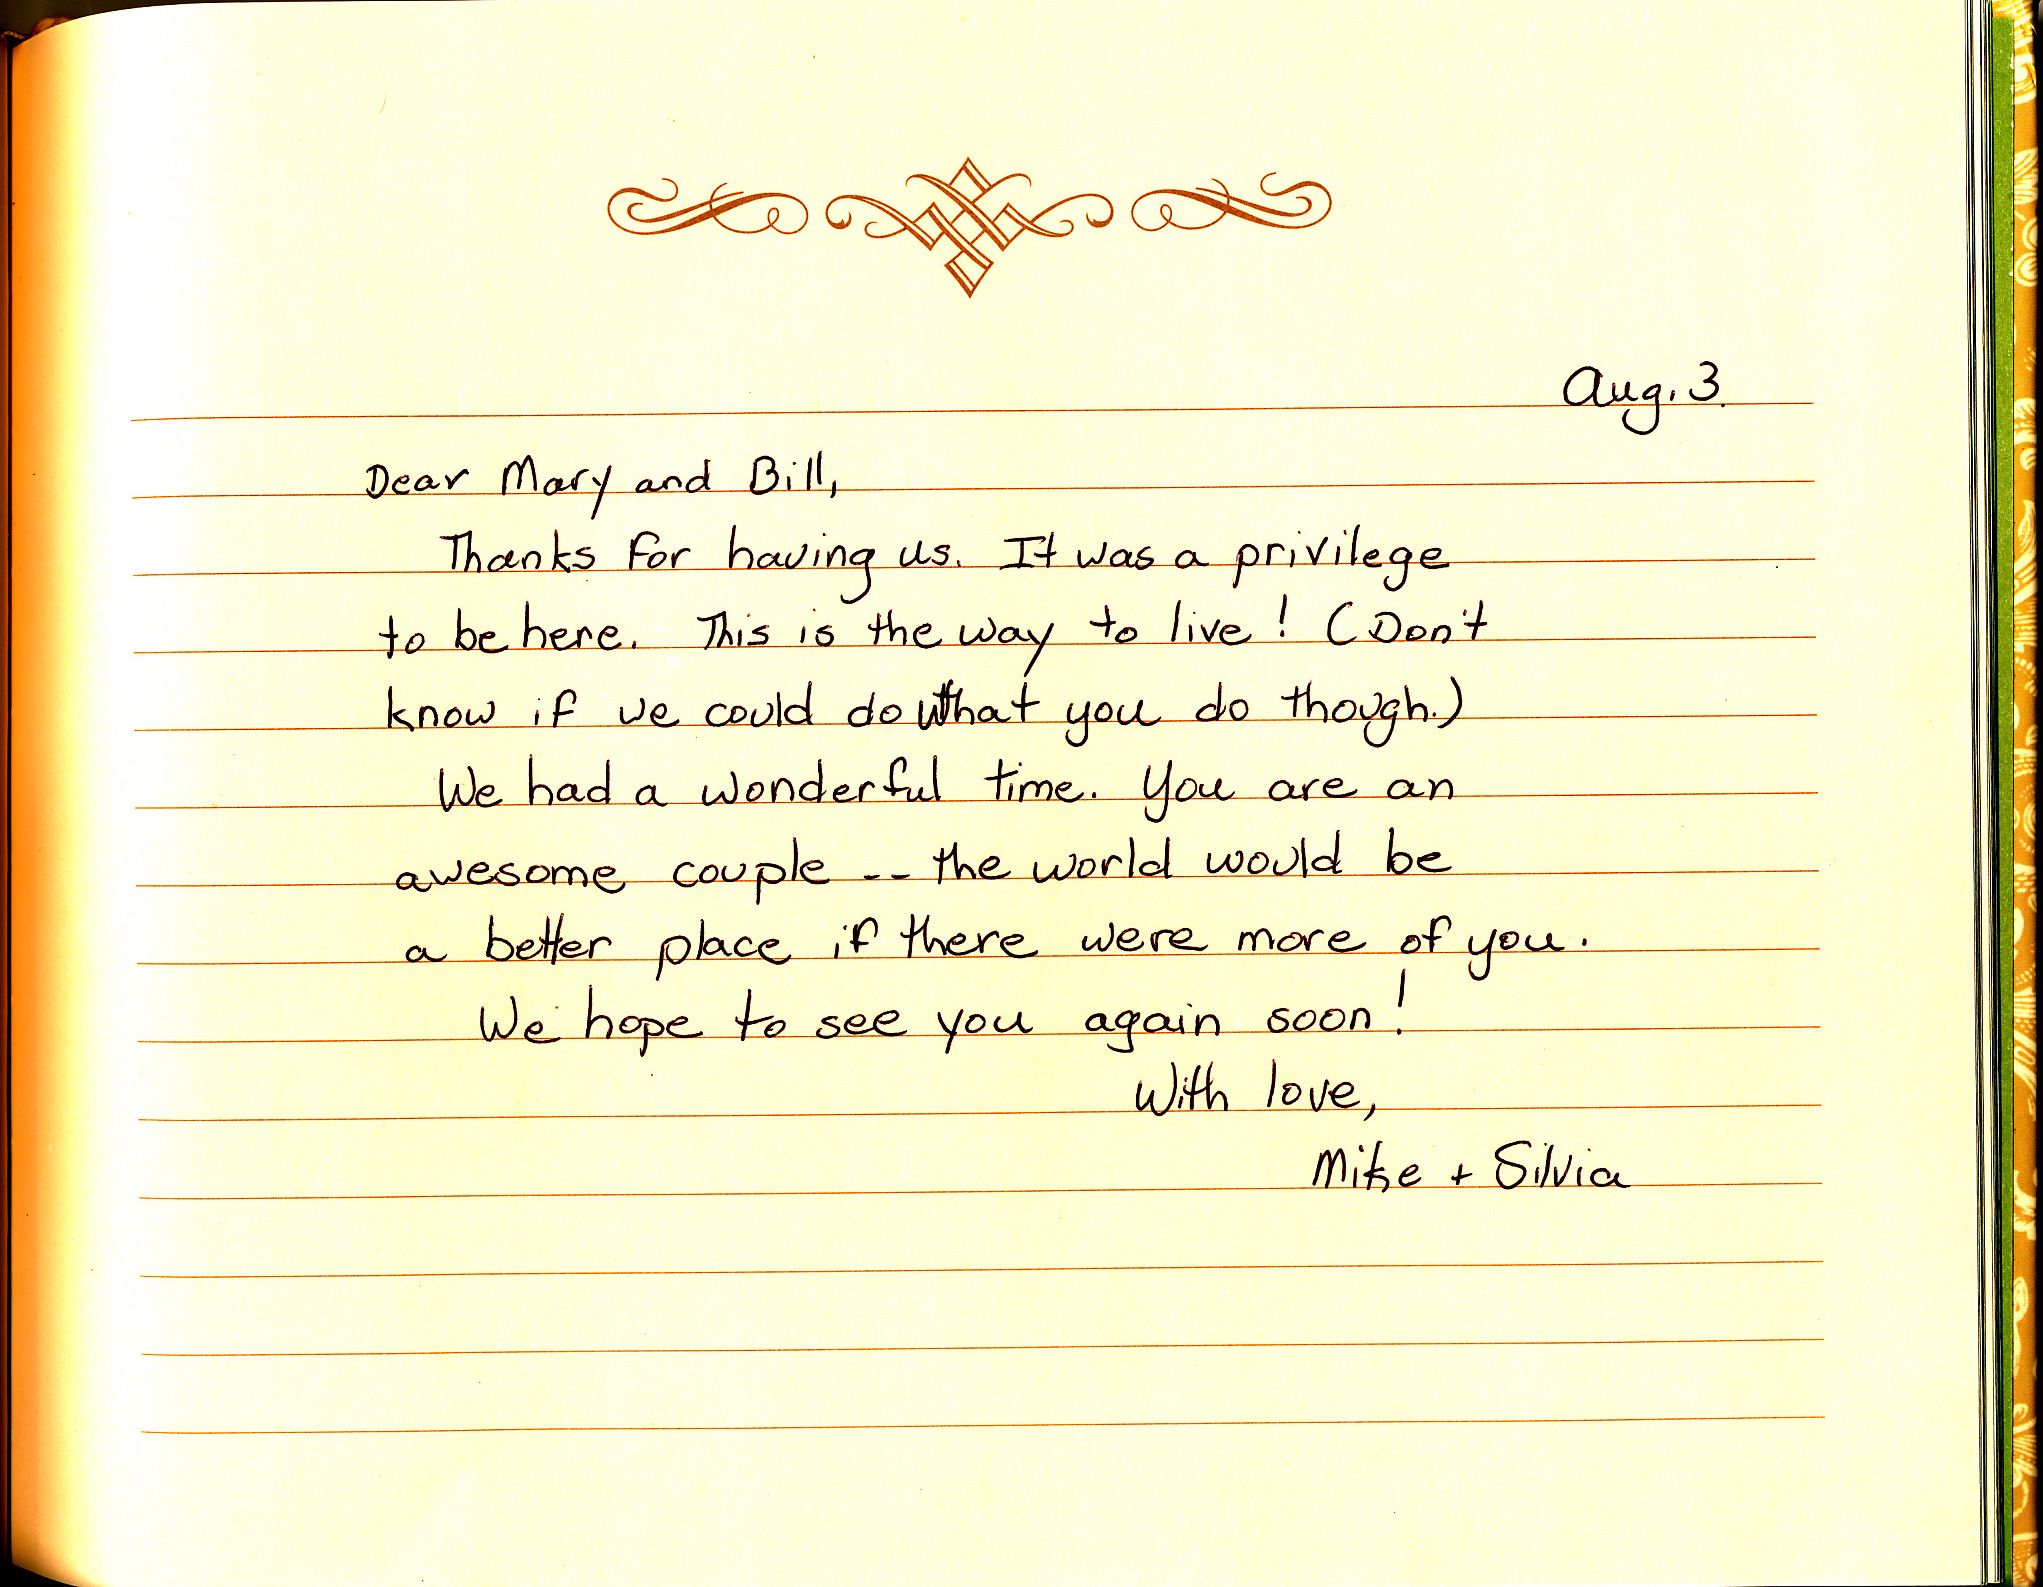 Aug. 3.
Dear Mary and Bill,
Thanks for having us. It was a privilege
to be here. This is the way to live! (Don't
know if we could do what you do though.)
We had a wonderful time. You are an
awesome couple -- the world would be
a better place if there were more of you.
We hope to see you again soon!
With love,
Mike + Silvia